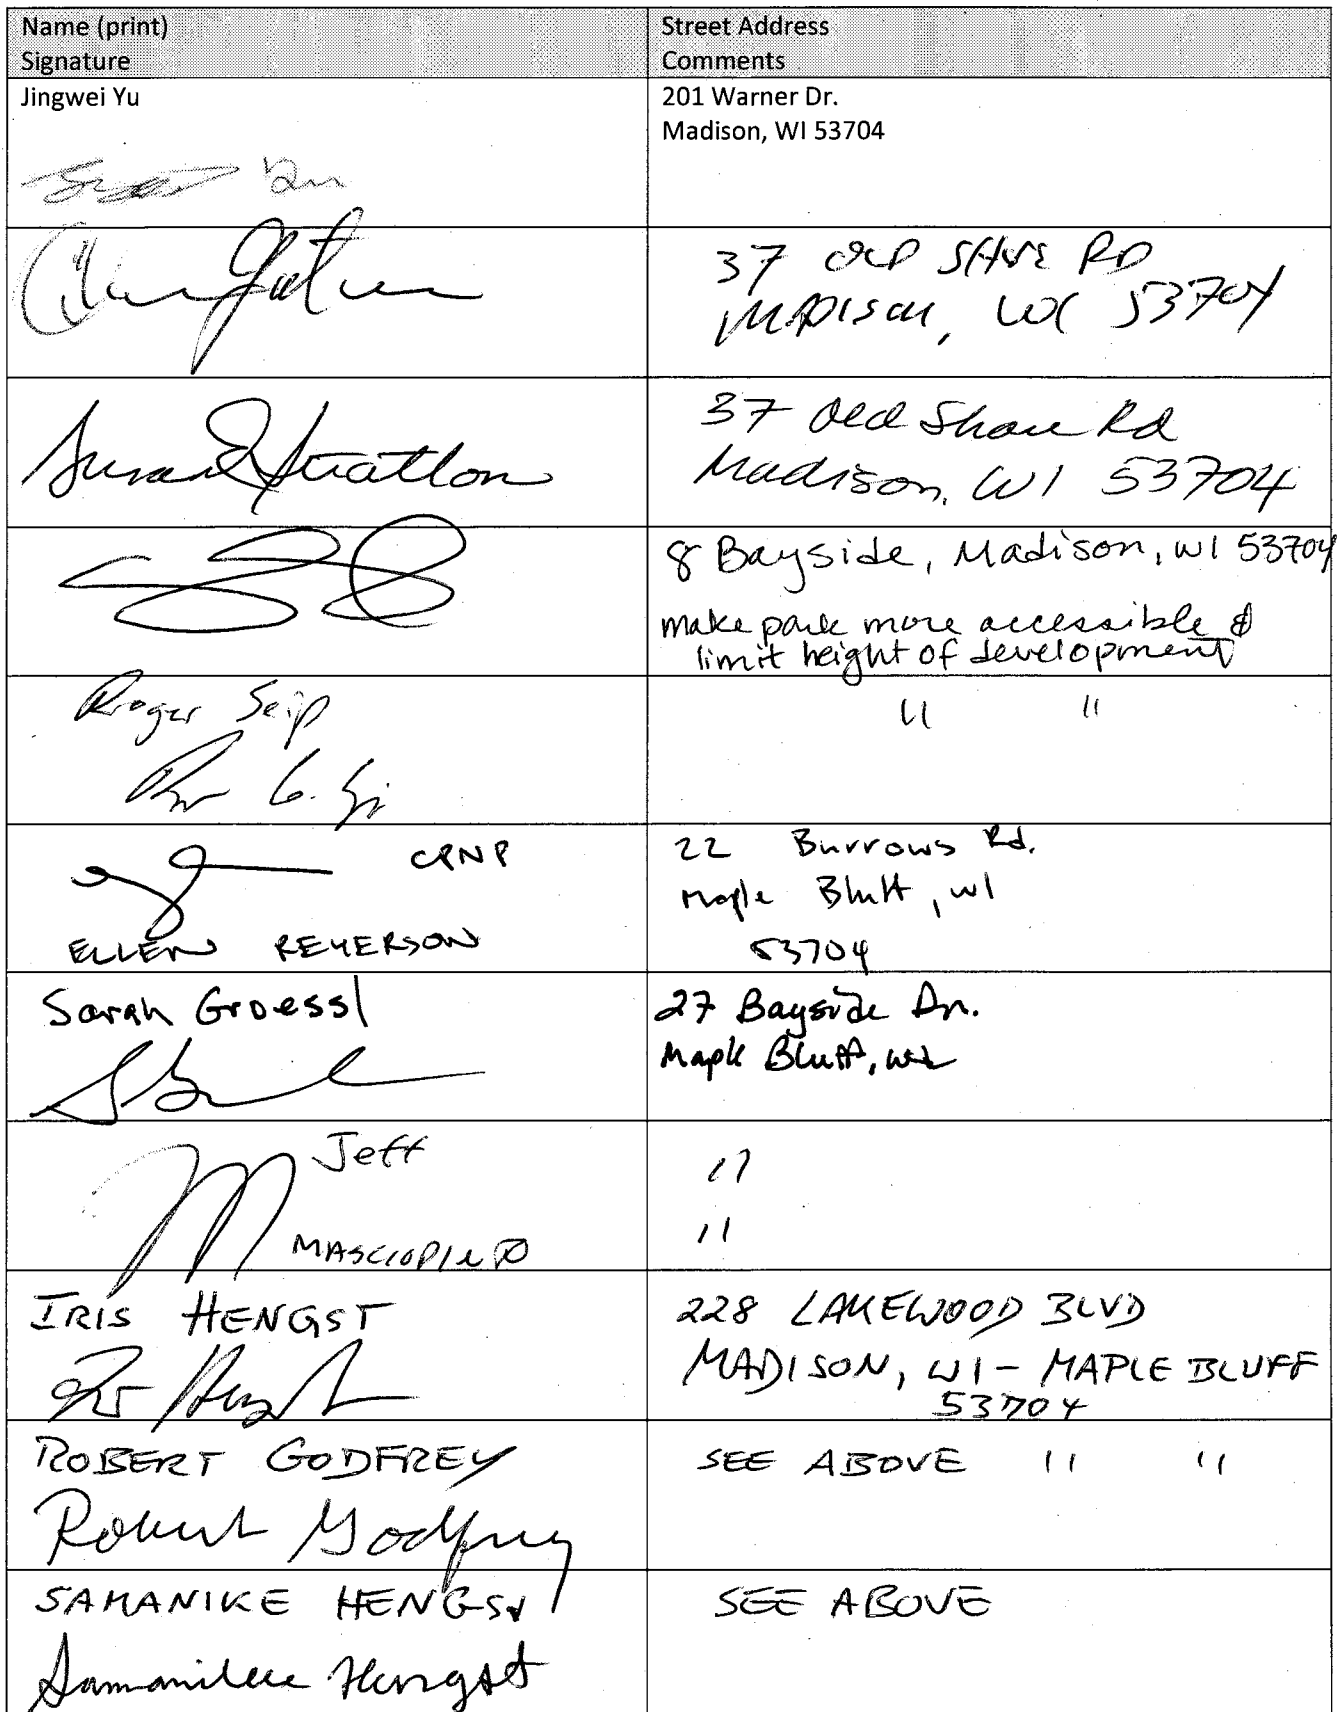 Name (print)
Signature
Street Address
Comments
Jingwei Yu
201 Warner Dr.
Madison, WI 53704
37 OLD SHORE RD
MADISON, WI 53704
Susan Stratton
37 Old Shore Rd
Madison, WI 53704
8 Bayside, Madison, WI 53704
make park more accessible &
limit height of development
Roger Seip
" "
CPNP
ELLEN REYERSON
22 Burrows Rd.
Maple Bluff, WI
53704
Sarah Groessl
27 Bayside Dr.
Maple Bluff, WI
Jeff
MASCIOPINTO
"
"
IRIS HENGST
228 LAKEWOOD BLVD
MADISON, WI - MAPLE BLUFF
53704
ROBERT GODFREY
Robert Godfrey
SEE ABOVE " "
SAMANIKE HENGST
Samanike Hengst
SEE ABOVE